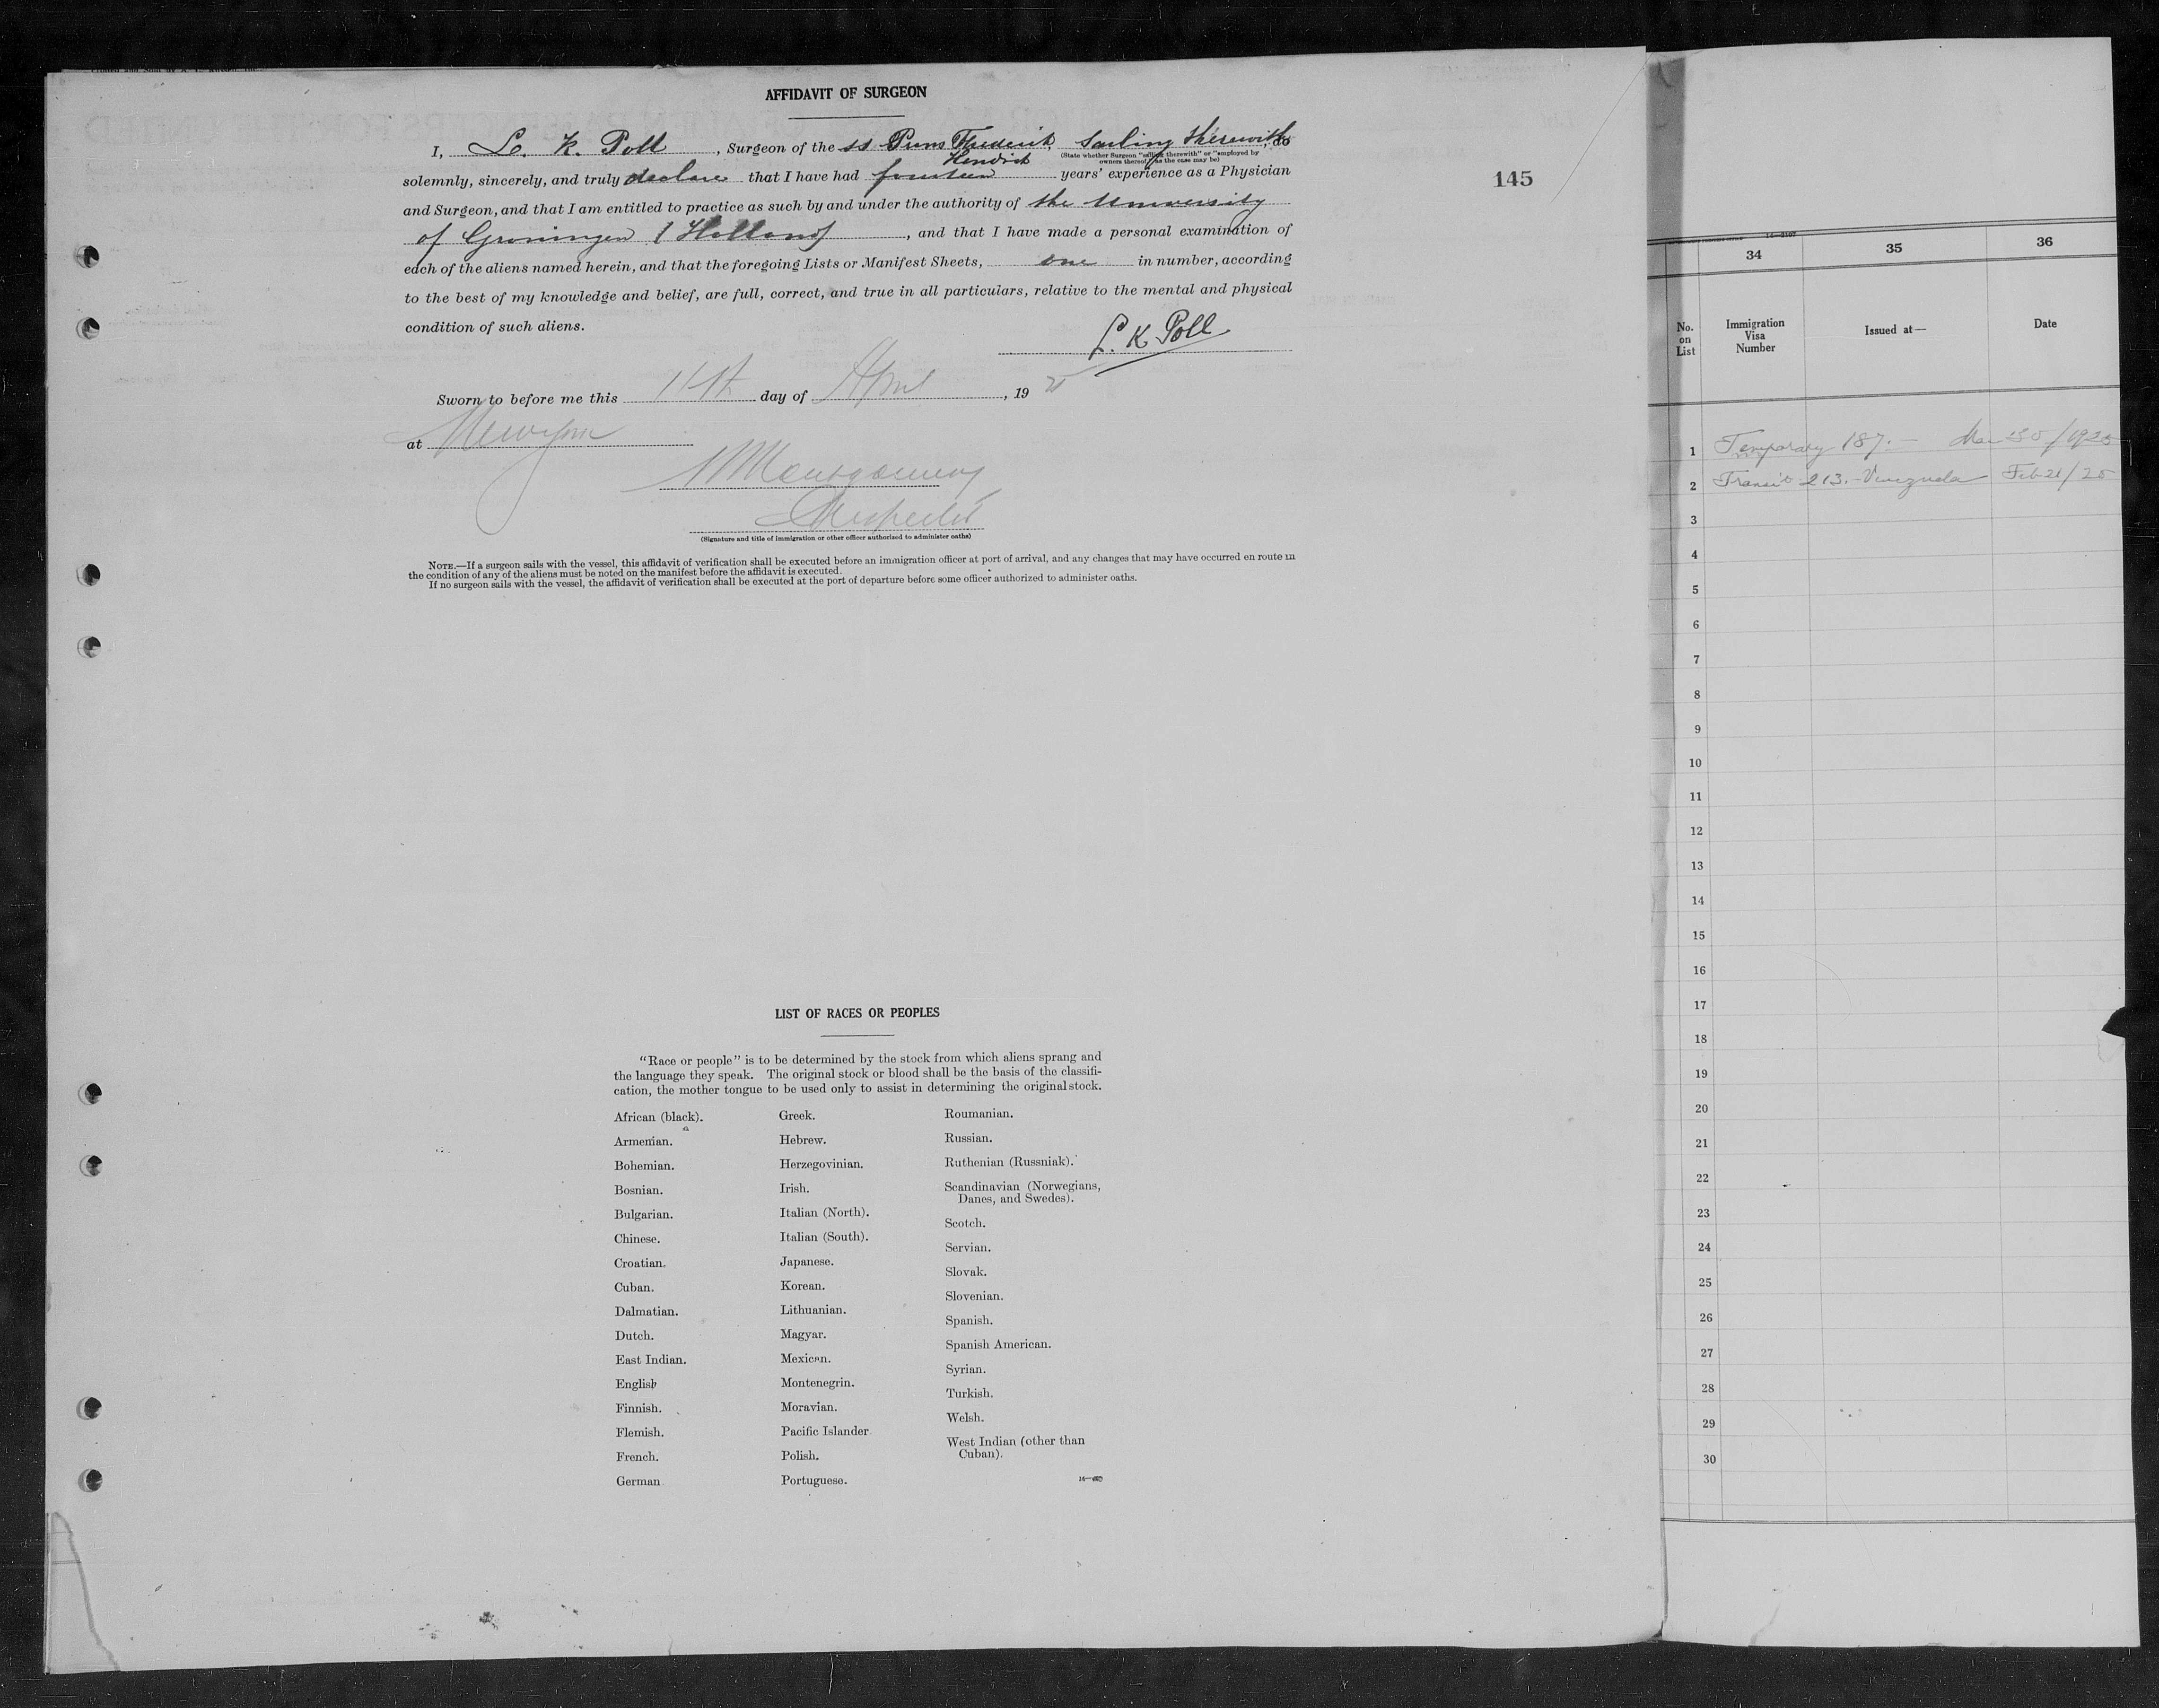 AFFIDAVIT OF SURGEON
I, L. K. Poll, Surgeon of the ss Prins Frederik Hendrik, Sailing therewith, do
(State whether Surgeon "sailing therewith" or "employed by owners thereof," as the case may be)
solemnly, sincerely, and truly declare that I have had fourteen years' experience as a Physician
and Surgeon, and that I am entitled to practice as such by and under the authority of the University
of Groningen (Holland), and that I have made a personal examination of
each of the aliens named herein, and that the foregoing Lists or Manifest Sheets, one in number, according
to the best of my knowledge and belief, are full, correct, and true in all particulars, relative to the mental and physical
condition of such aliens.
L. K Poll
Sworn to before me this 11th day of April, 19
at New York
Montgomery
Inspector
(Signature and title of immigration or other officer authorized to administer oaths)
NOTE.—If a surgeon sails with the vessel, this affidavit of verification shall be executed before an immigration officer at port of arrival, and any changes that may have occurred en route in
the condition of any of the aliens must be noted on the manifest before the affidavit is executed.
If no surgeon sails with the vessel, the affidavit of verification shall be executed at the port of departure before some officer authorized to administer oaths.
145
LIST OF RACES OR PEOPLES
"Race or people" is to be determined by the stock from which aliens sprang and
the language they speak. The original stock or blood shall be the basis of the classifi-
cation, the mother tongue to be used only to assist in determining the original stock.
African (black).
Armenian.
Bohemian.
Bosnian.
Bulgarian.
Chinese.
Croatian.
Cuban.
Dalmatian.
Dutch.
East Indian.
English
Finnish.
Flemish.
French.
German
Greek.
Hebrew.
Herzegovinian.
Irish.
Italian (North).
Italian (South).
Japanese.
Korean.
Lithuanian.
Magyar.
Mexican.
Montenegrin.
Moravian.
Pacific Islander
Polish.
Portuguese.
Roumanian.
Russian.
Ruthenian (Russniak).
Scandinavian (Norwegians,
Danes, and Swedes).
Scotch.
Servian.
Slovak.
Slovenian.
Spanish.
Spanish American.
Syrian.
Turkish.
Welsh.
West Indian (other than
Cuban).
34 35 36
No. on List
Immigration Visa Number
Issued at—
Date
1 Temporary 187.— Mar 30/1925
2 Transit 213.- Venezuela Feb 21/25
3
4
5
6
7
8
9
10
11
12
13
14
15
16
17
18
19
20
21
22
23
24
25
26
27
28
29
30